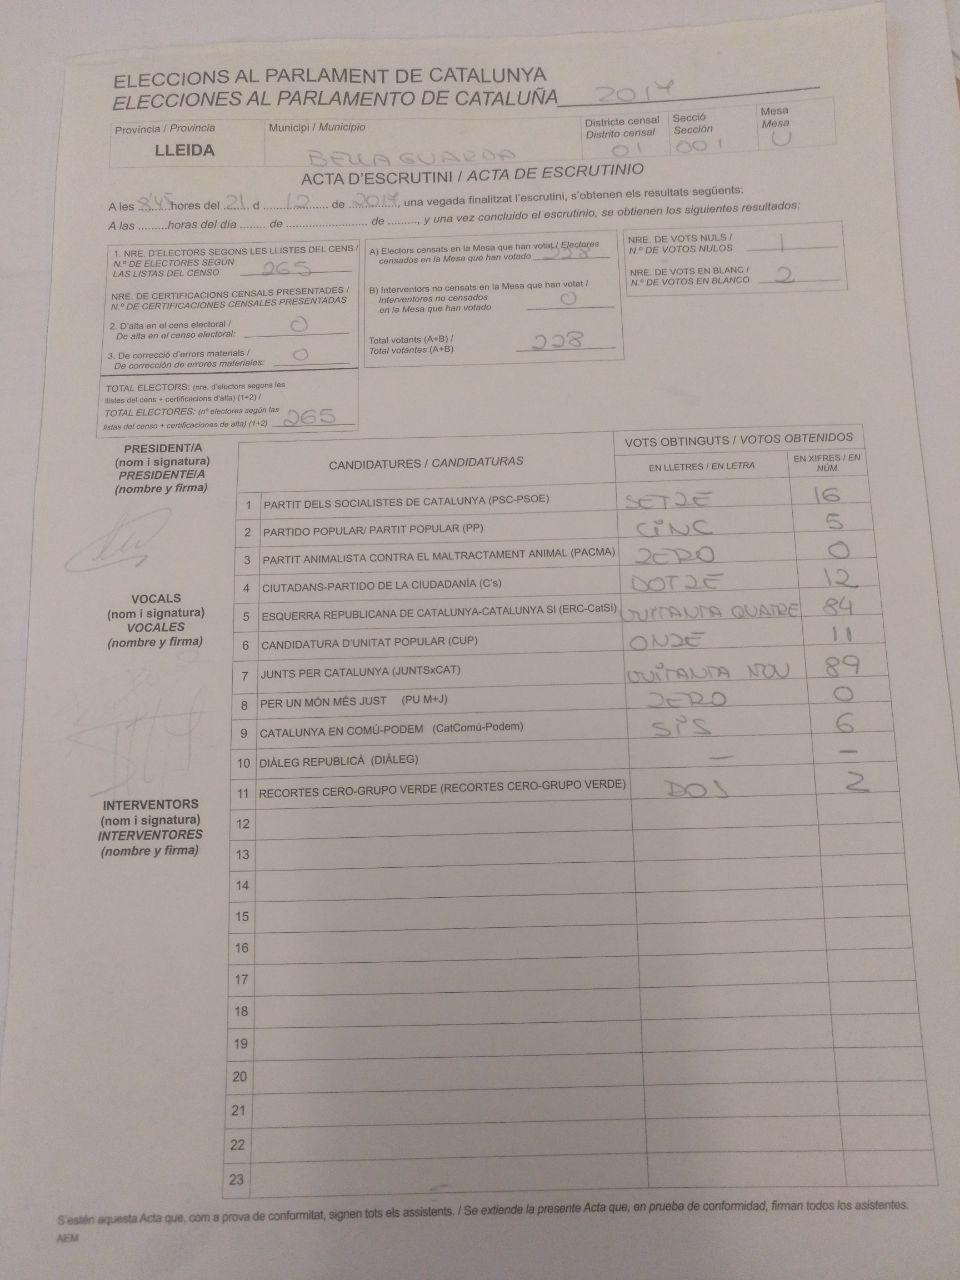 ELECCIONS AL PARLAMENT DE CATALUNYA
ELECCIONES AL PARLAMENTO DE CATALUÑA 2017
Provincia / Provincia
LLEIDA
Municipi / Municipio
BELLAGUARDA
Districte censal
Distrito censal
01
Secció
Sección
001
Mesa
Mesa
U
ACTA D'ESCRUTINI / ACTA DE ESCRUTINIO
A les 8'45 hores del 21 d 12 de 2017, una vegada finalitzat l'escrutini, s'obtenen els resultats següents:
A las .........horas del día ....... de ......................... de ........., y una vez concluido el escrutinio, se obtienen los siguientes resultados:
1. NRE. D'ELECTORS SEGONS LES LLISTES DEL CENS /
N.º DE ELECTORES SEGÚN
LAS LISTAS DEL CENSO 265
NRE. DE CERTIFICACIONS CENSALS PRESENTADES /
N.º DE CERTIFICACIONES CENSALES PRESENTADAS
2. D'alta en el cens electoral /
De alta en el censo electoral: 0
3. De correcció d'errors materials /
De corrección de errores materiales: 0
TOTAL ELECTORS: (nre. d'electors segons les
llistes del cens + certificacions d'alta) (1+2) /
TOTAL ELECTORES: (nº electores según las
listas del censo + certificaciones de alta) (1+2) 265
A) Electors censats en la Mesa que han votat / Electores
censados en la Mesa que han votado 228
B) Interventors no censats en la Mesa que han votat /
Interventores no censados
en la Mesa que han votado 0
Total votants (A+B) /
Total votantes (A+B) 228
NRE. DE VOTS NULS /
N.º DE VOTOS NULOS 1
NRE. DE VOTS EN BLANC /
N.º DE VOTOS EN BLANCO 2
PRESIDENT/A
(nom i signatura)
PRESIDENTE/A
(nombre y firma)
VOCALS
(nom i signatura)
VOCALES
(nombre y firma)
INTERVENTORS
(nom i signatura)
INTERVENTORES
(nombre y firma)
CANDIDATURES / CANDIDATURAS
VOTS OBTINGUTS / VOTOS OBTENIDOS
EN LLETRES / EN LETRA
EN XIFRES / EN NÚM.
1 PARTIT DELS SOCIALISTES DE CATALUNYA (PSC-PSOE) SETZE 16
2 PARTIDO POPULAR/ PARTIT POPULAR (PP) CINC 5
3 PARTIT ANIMALISTA CONTRA EL MALTRACTAMENT ANIMAL (PACMA) ZERO 0
4 CIUTADANS-PARTIDO DE LA CIUDADANÍA (C's) DOTZE 12
5 ESQUERRA REPUBLICANA DE CATALUNYA-CATALUNYA SI (ERC-CatSI) VUITANTA QUATRE 84
6 CANDIDATURA D'UNITAT POPULAR (CUP) ONZE 11
7 JUNTS PER CATALUNYA (JUNTSxCAT) VUITANTA NOU 89
8 PER UN MÓN MÉS JUST (PU M+J) ZERO 0
9 CATALUNYA EN COMÚ-PODEM (CatComú-Podem) SIS 6
10 DIÀLEG REPUBLICÀ (DIÀLEG) — —
11 RECORTES CERO-GRUPO VERDE (RECORTES CERO-GRUPO VERDE) DOS 2
12
13
14
15
16
17
18
19
20
21
22
23
S'estén aquesta Acta que, com a prova de conformitat, signen tots els assistents. / Se extiende la presente Acta que, en prueba de conformidad, firman todos los asistentes.
AEM